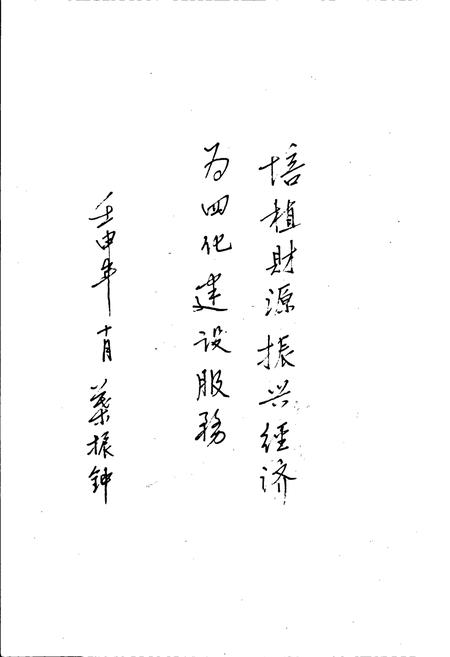 培植財源振兴經济
为四化建设服務
壬申年十月葉振钟